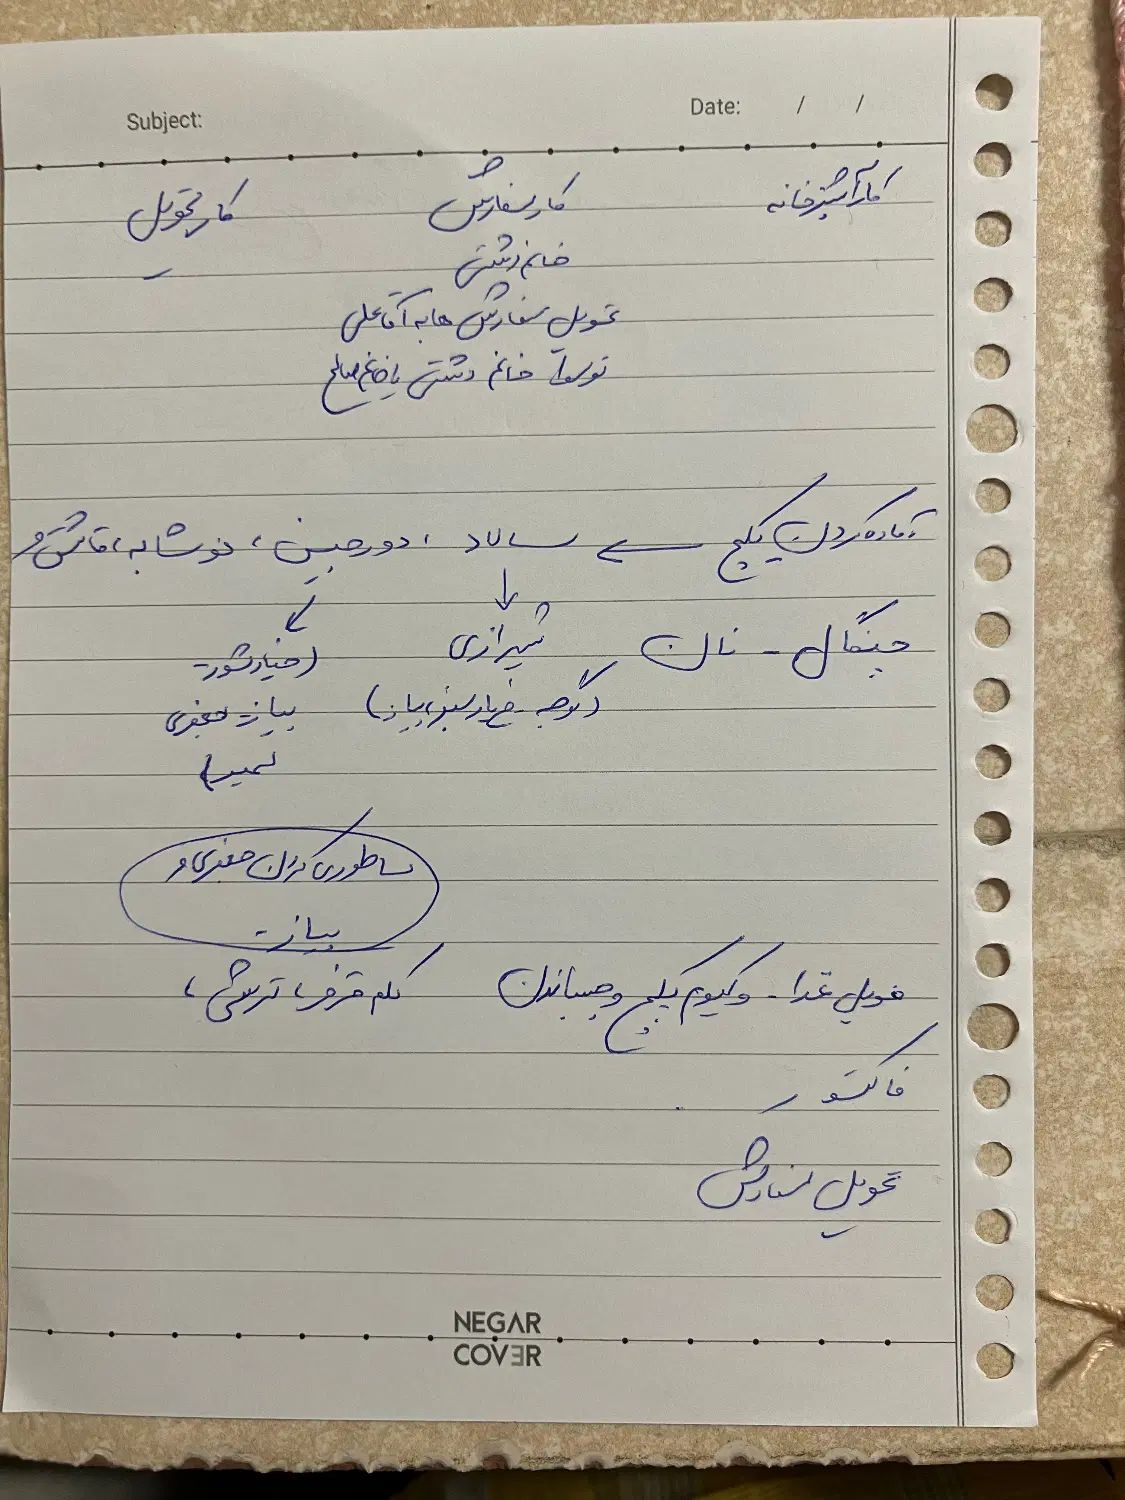 Subject: Date: / /
کار آشپزخانه کار سفارش کار تحویل
خانم دشتی
تحویل سفارش ها به آقا علی
توسط خانم دشتی یا خانم صالح
آماده کردن پکیج ← سالاد ، دورچین ، نوشابه ، قاشق و
چنگال - نان شیرازی (خیارشور -
(گوجه - خیار سبز، پیاز) پیاز - جعفری
لیمو)
ساطوری کردن جعفری و
پیاز -
فویل غذا - وکیوم پکیج و چسباندن کلم قرمز، ترشی ،
فاکتور
تحویل سفارش
NEGAR
COVER